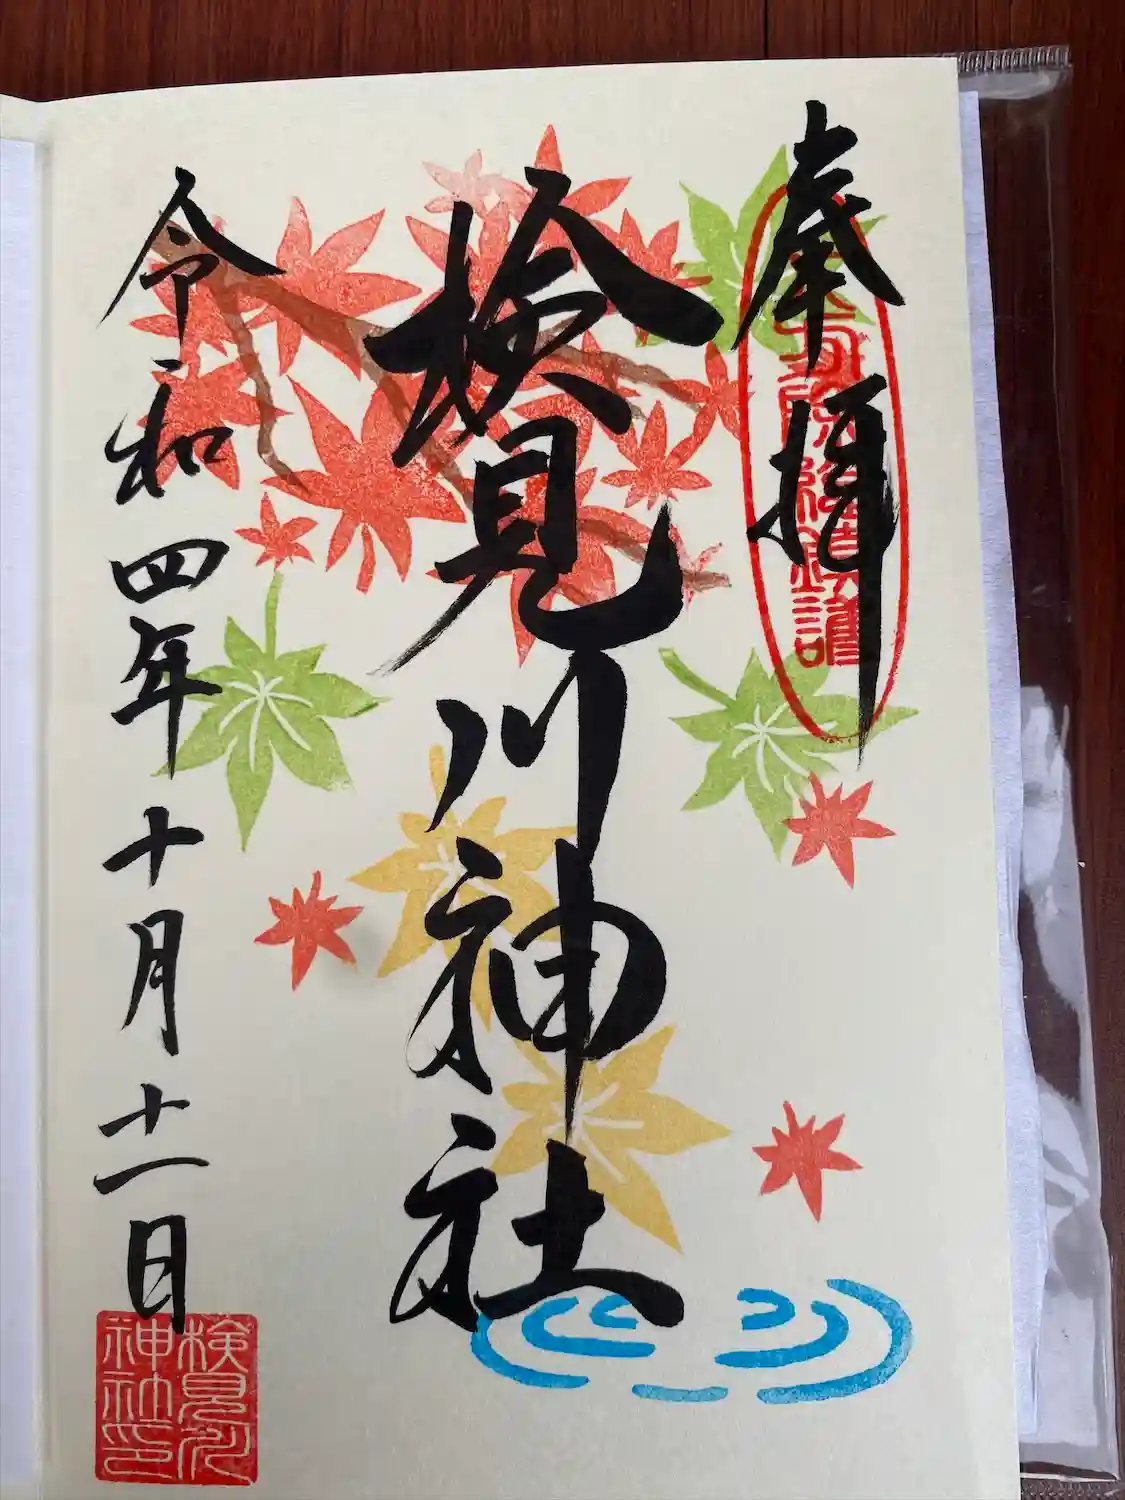 奉拝
検見川神社
令和四年十月十一日
検見川
神社印